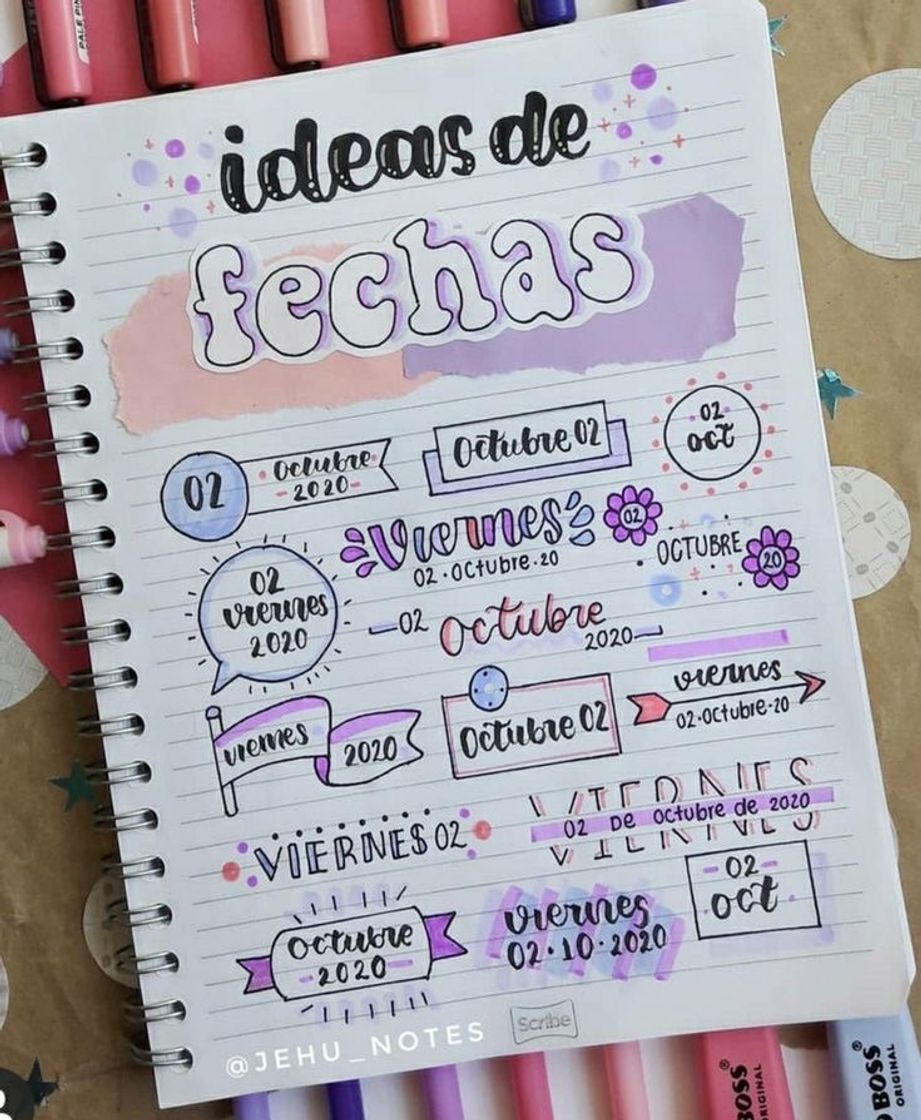 PALE PIN
ideas de
fechas
02
octubre
2020
Octubre 02
02
oct
Viernes
02·Octubre·20
02
OCTUBRE
20
02
viernes
2020
02
octubre
2020
viernes
2020
Octubre 02
viernes
02·Octubre·20
VIERNES 02
VIERNES
02 DE octubre de 2020
octubre
2020
viernes
02·10·2020
02
oct
@JEHU_NOTES
Scribe
BOSS®
ORIGINAL
BOSS®
ORIGINAL